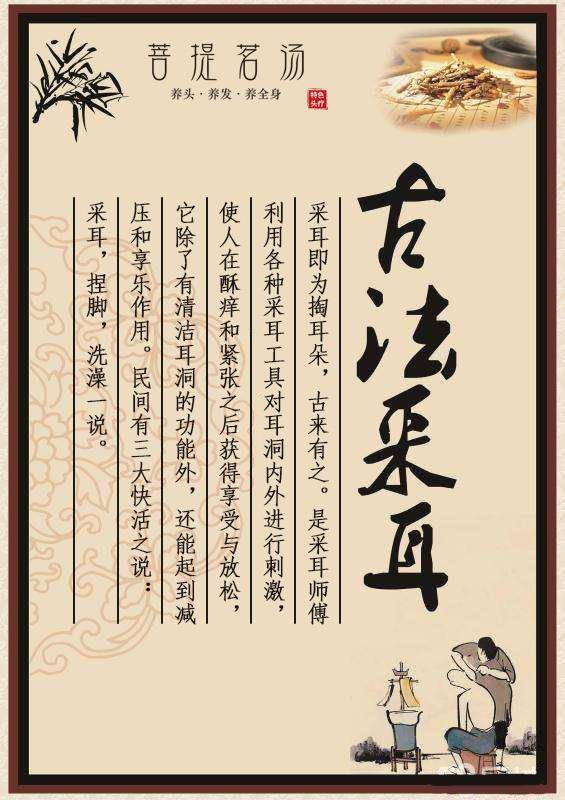 菩提茗汤
养头·养发·养全身
特色
头疗
古法采耳
采耳即为掏耳朵，古来有之。是采耳师傅
利用各种采耳工具对耳洞内外进行刺激，
使人在酥痒和紧张之后获得享受与放松，
它除了有清洁耳洞的功能外，还能起到减
压和享乐作用。民间有三大快活之说：
采耳，捏脚，洗澡一说。